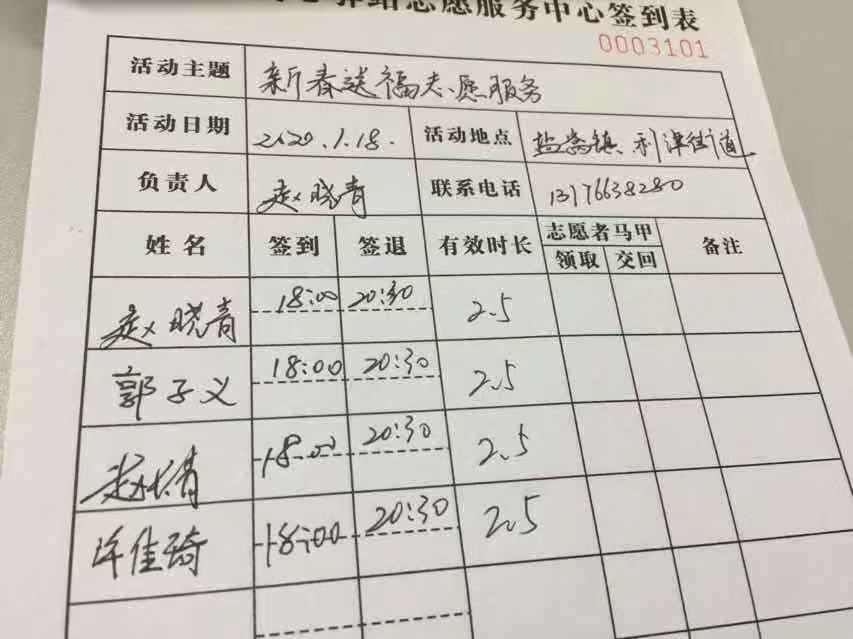 驿站志愿服务中心签到表
0003101
活动主题 新春送福志愿服务
活动日期 2020.1.18. 活动地点 盐窝镇、利津街道
负责人 赵晓青 联系电话 13176638280
姓名 签到 签退 有效时长 志愿者马甲 备注
领取 交回
赵晓青 18:00 20:30 2.5
郭子义 18:00 20:30 2.5
赵长青 18:00 20:30 2.5
许佳琦 18:00 20:30 2.5